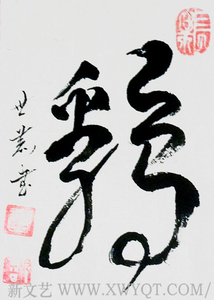 鷄
世業書
新文艺 WWW.XWYQT.COM/